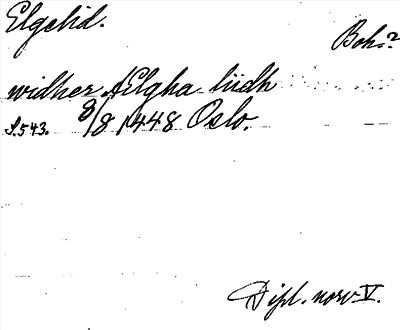 Elgelid.
Boh.?
widher Ælgha liidh
S. 543. 8/8 1448 Oslo.
Dipl. norv. V.